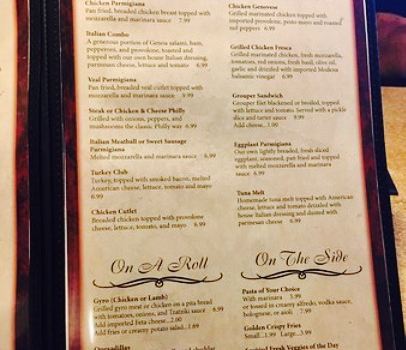 Chicken Parmigiana
Pan fried, breaded chicken breast topped with
mozzarella and marinara sauce 7.99
Italian Combo
A generous portion of Genoa salami, ham,
pepperoni, and provolone, toasted and
topped with our own house Italian dressing,
parmesan cheese, lettuce and tomato 6.99
Veal Parmigiana
Pan fried, breaded veal cutlet topped with
mozzarella and marinara sauce 8.99
Steak or Chicken & Cheese Philly
Grilled with onions, peppers, and
mushrooms the classic Philly way 6.99
Italian Meatball or Sweet Sausage
Parmigiana
Melted mozzarella and marinara sauce 6.99
Turkey Club
Turkey, topped with smoked bacon, melted
American cheese, lettuce, tomato and mayo
6.99
Chicken Cutlet
Breaded chicken topped with provolone
cheese, lettuce, tomato, and mayo 6.99
On A Roll
Gyro (Chicken or Lamb)
Grilled gyro meat or chicken on a pita bread
with tomatoes, onions, and Tzatziki sauce 6.99
Add imported feta cheese...1.00
Add fries or creamy potato salad...1.69
Quesadillas
Chicken Genovese
Grilled marinated chicken topped with
imported provolone, pesto mayo and roasted
red peppers 6.99
Grilled Chicken Fresca
Grilled marinated chicken, fresh mozzarella,
tomatoes, red onions, fresh basil, olive oil,
garlic and drizzled with imported Modena
balsamic vinegar 6.99
Grouper Sandwich
Grouper filet blackened or broiled, topped
with lettuce and tomato. Served with a pickle
slice and tarter sauce 9.99
Add cheese...1.00
Eggplant Parmigiana
Our own lightly breaded, fresh sliced
eggplant, seasoned, pan fried and topped
with melted mozzarella and marinara
sauce 6.99
Tuna Melt
Homemade tuna melt topped with American
cheese, lettuce and tomato drizzled with
house Italian dressing and dusted with
parmesan cheese 6.99
On The Side
Pasta of Your Choice
With marinara 3.99
or tossed in creamy alfredo, vodka sauce,
bolognese, or aioli 7.99
Golden Crispy Fries
Small...1.99 Large...3.99
Fresh Veggies of the Day